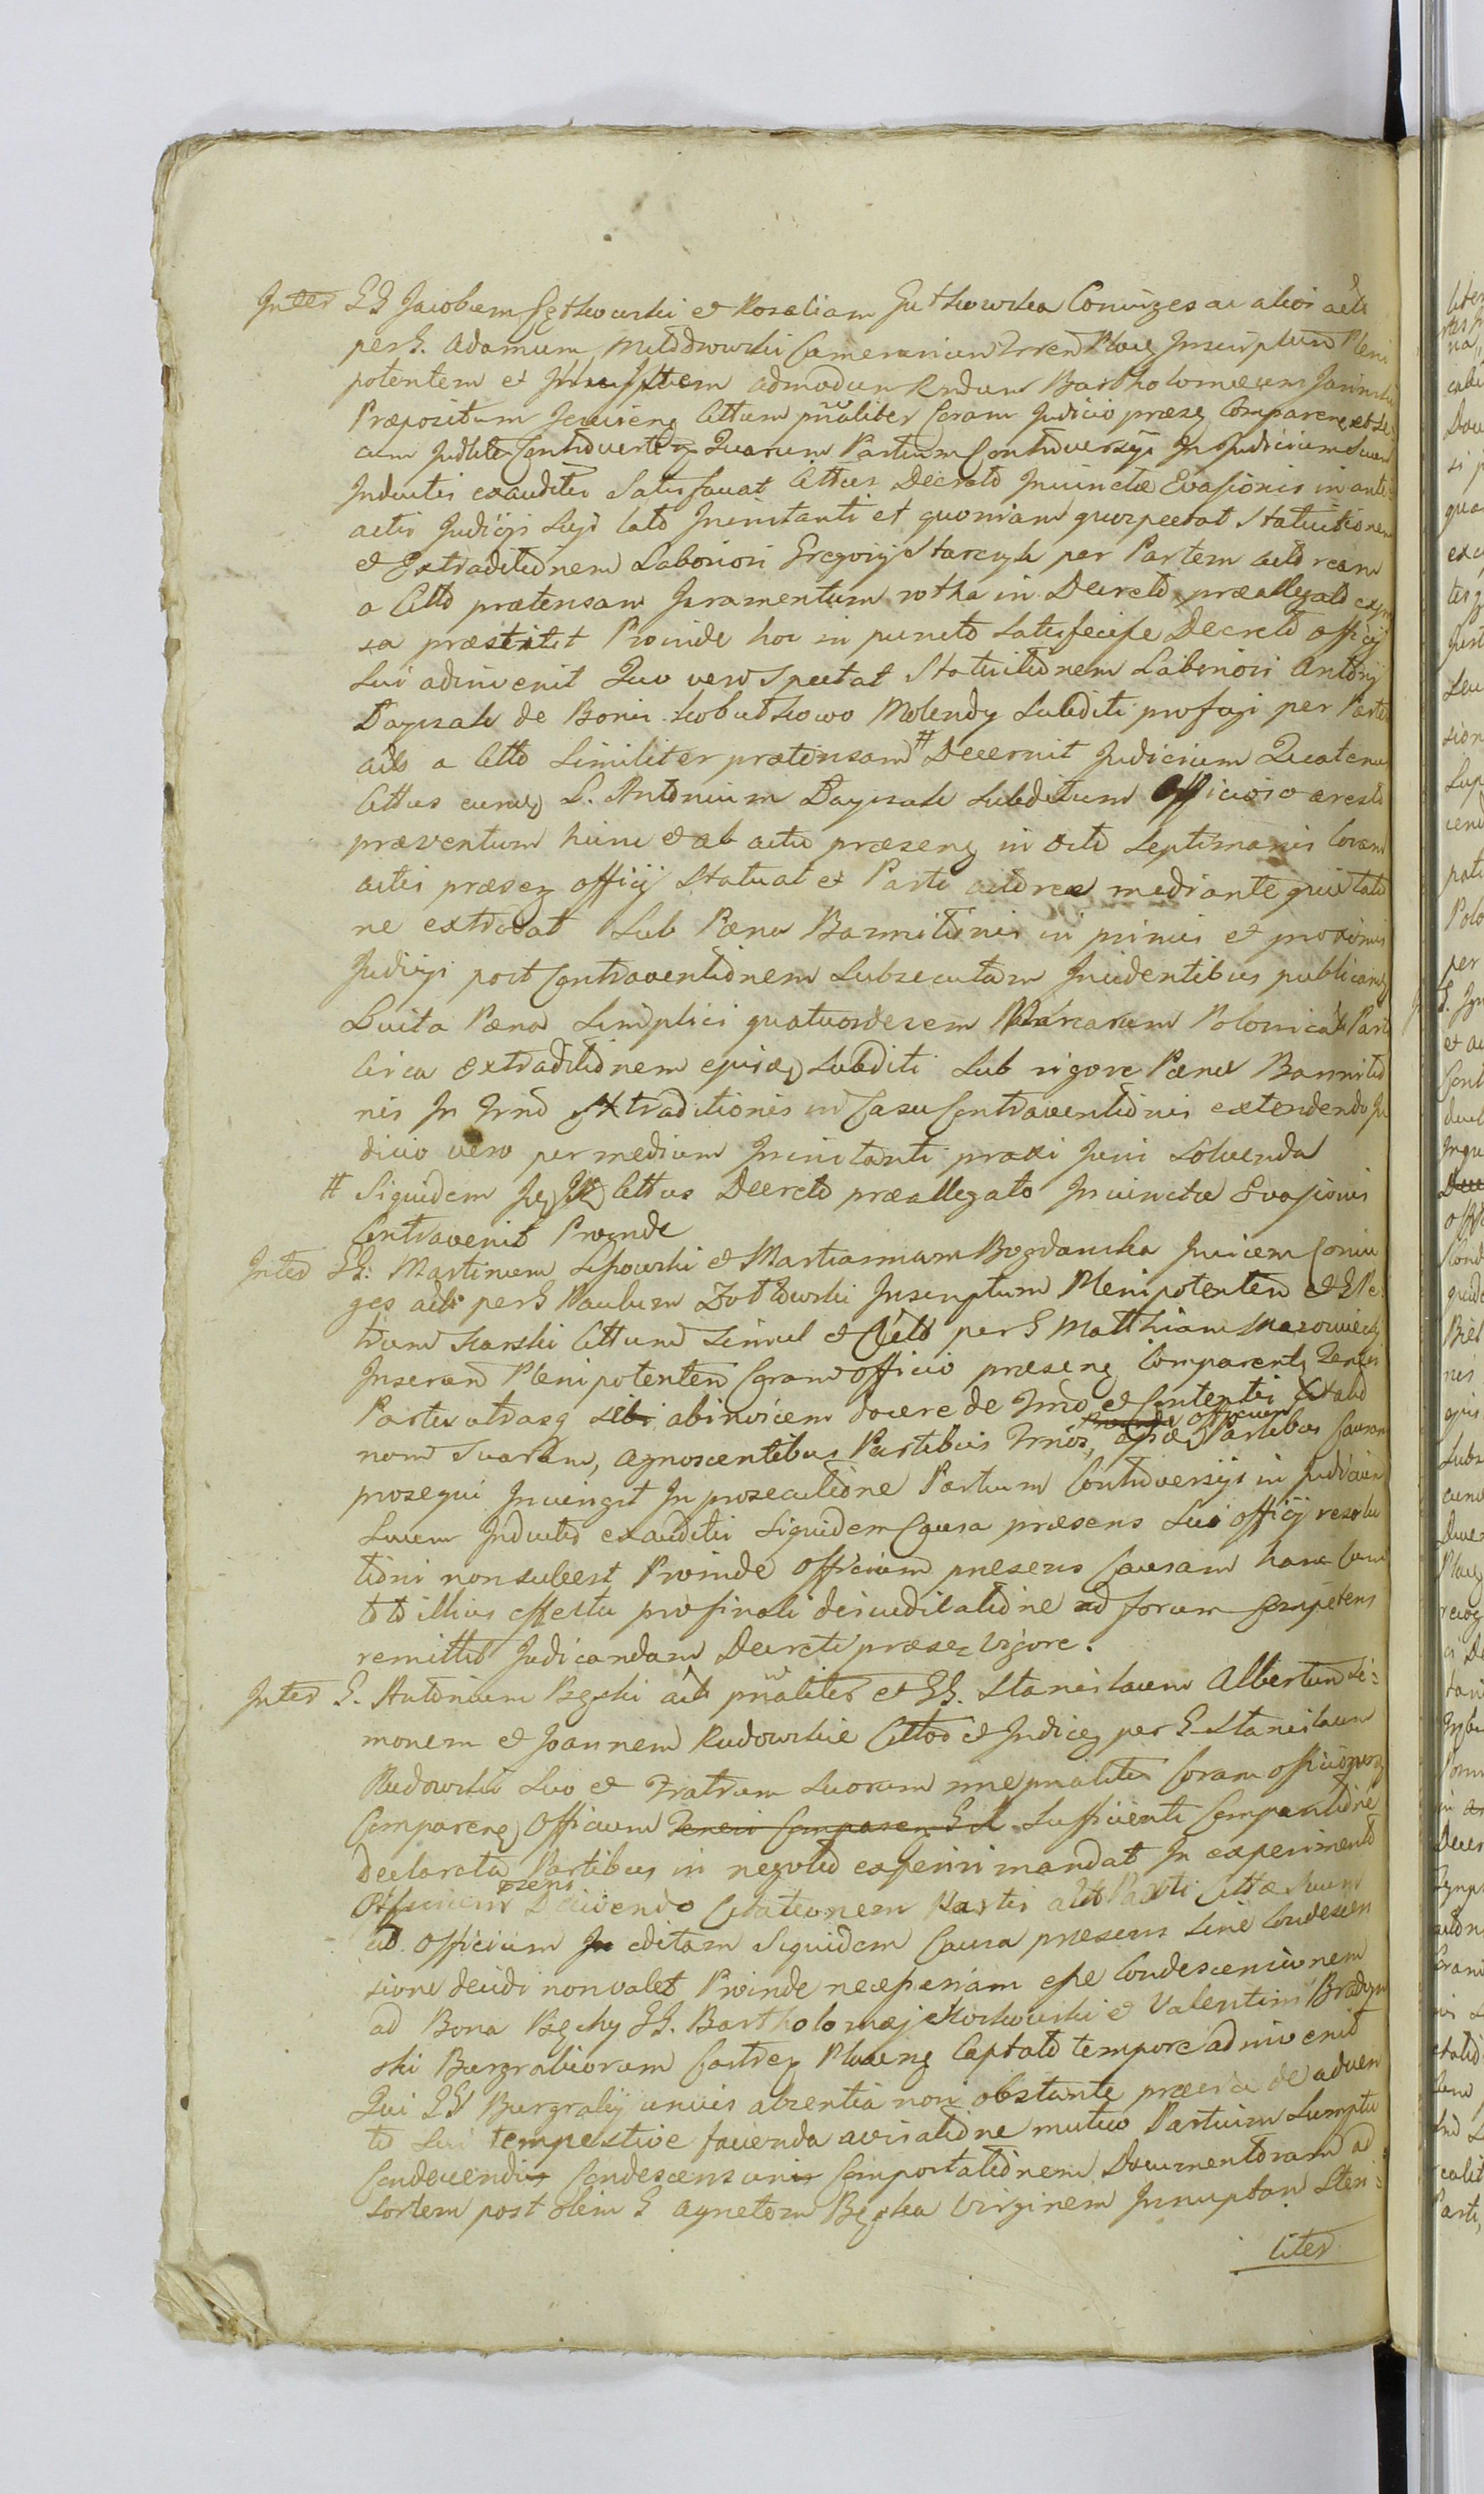 Inter GG Jacobum Gętkowski et Rosaliam Gutkowska Coniuges ac alios acts
per G. Adamum Młodzowski Camerarium Plocz Inscriptum Pleni
potentem et admodum Rndum Bartholomæum
Præpositum Citatum pnaliter Coram Judicio præseq Comparen et se
cum Quarum Partium Controversijs In Judicium Suum
Inductis exauditis Satisfaciat Cittus Decreto Iniunctæ Evasionis in ante
actis Judicijs Suis lato Inimitanti et quoniam quo spectat Statuitionem
et Extraditionem Laboriosi Gregorij Starczyk per Partem actoream
a Citto prætensam Juramentum rotha in Decreto præallegato expres
sa præstitit Proinde hoc in puncto Satisfecisse Decreto officij
Sui adinvenit Quo vero Spectat Statuitionem Laboriosi Antonij
de Bonis Molendy Subditi profugi per Partem
acts a Citto Similiter prætensam # Decernit Judicium Quatenus
Cittus eundq L. Antonium Subditum Officioso aresto
præventum hinc et ab actu præsenq in octo Septimanis Coram
actis præseq officij Statuat et Parti actoreæ mediante quietatio
ne extradat Sub Pæna Bannitionis in primis et proximis
Judicijs post Contraventionem Subsecutam Incidentibus publicand
Luita Pæna Simplici quatuordecem Marcarum Polonical Parti
Circa extraditionem ejusdq Subditi Sub rigore Pænæ Bannitio
nis In Trno Extraditionis in Casu Contraventionis extendendo Ju
dicio vero per medium Inimitanti praxi Juni Solvenda
# Siquidem Cittus Decreto præallegato Iniunctæ Evasionis
Contravenit Proinde
Inter GG: Martinum Lipowski et Mariannam Bogdanska Invicem Coniu
ges acts per G Paulum Zołtowski Inscriptum Plenipotenten et G Pe
trum Karski Cittum Simul et per G Matthiam Mazowiecki
Inseran Plenipotenten Coram officio præsenq Comparent Teneri
Partes utrasq sibi abinvicem docere de Trno et Contentis Citatio
num Suarum, agnoscentibus Partibus Trnos, Proinde officium ipsisdq Partibus Causam
prosequi Iniungit In prosecutione Partium Controversijs in Judicium
Suum Inductis exauditis Siquidem Causa præsens Sui officij resolu
tioni non subest Proinde Officium præsens Causam hanc Cum
toto illius effectu pro finali dijudicatione ad forum Competens
remittit Judicandam Decreti præseq Vigore.
Inter G. Antonium Bęski acts pnaliter et GG. Stanislaum Albertum Si=
monem et Joannem Rudowskie Cittos et Judiceq per G. Stanislaum
Rudowski Suo et Fratrum Suorum nne pnaliter Coram officio præseq
Comparenq Officium Teneri Comparen Sufficienti Comparitione
declarata Partibus in negotio experiri mandat In experimento
Officium præsens Decidendo Citationem Partis acto Parti Cittæ Suum
ad Officium In editam Siquidem Causa præsens Sine Condescen
sione decidi non valet Proinde necessariam esse Condescensionem
ad Bona Bęchy GG. Bartholomæj et Valentini
ski Burgrabiorum Castreq Plocenq Captato tempore adinvenit
Qui GG Burgrabij unius absentia non obstante prævia de adven
tu Sui tempestive facienda avisatione mutuo Partium Sumptu
Condecendis Condescensionis Comportationem Documentorum ad
Sortem post olim G Agnetem Bęska Virginem Innuptam Steri=
liter